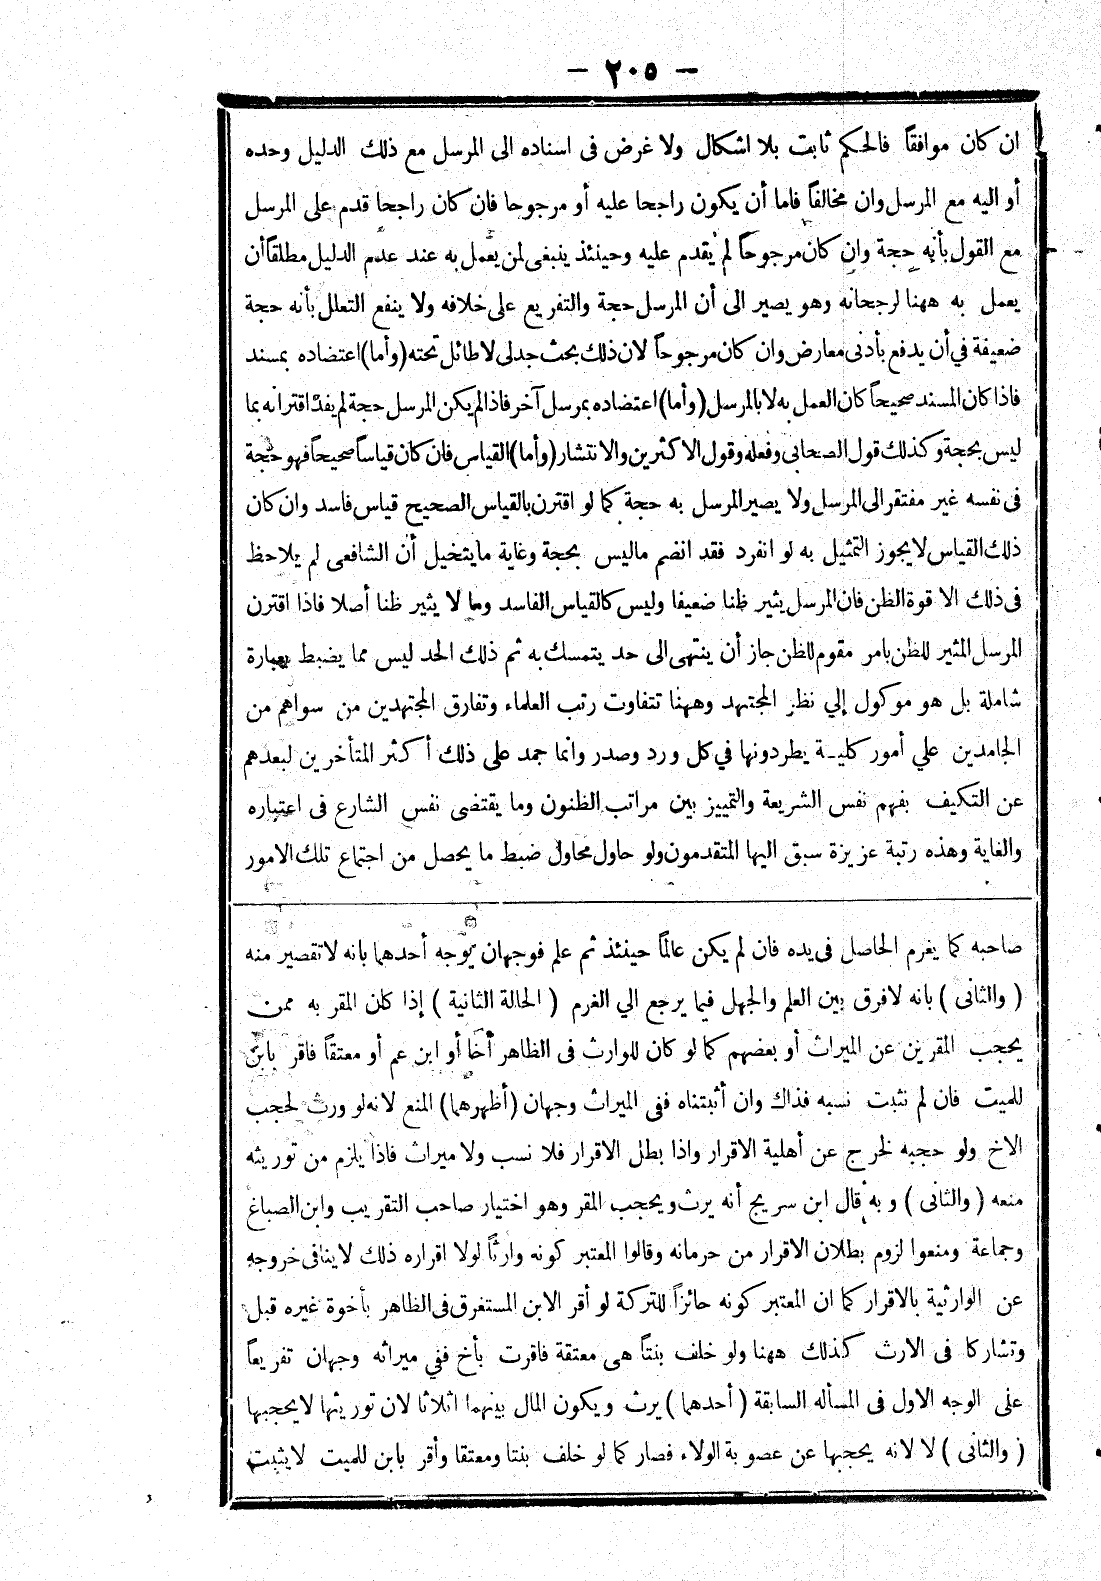 - ٢٠٥ -
ان كان موافقاً فالحكم ثابت بلا اشكال ولا غرض فى اسناده الى المرسل مع ذلك الدليل وحده
أو اليه مع المرسل وان مخالفاً فاما أن يكون راجحا عليه أو مرجوحا فان كان راجحا قدم على المرسل
مع القول بأنه حجة وان كان مرجوحاً لم يقدم عليه وحينئذ ينبغى لمن يعمل به عند عدم الدليل مطلقاً أن
يعمل به ههنا لرجحانه وهو يصير الى أن المرسل حجة والتفريع على خلافه ولا ينفع التعلل بأنه حجة
ضعيفة في أن يدفع بأدنى معارض وان كان مرجوحاً لان ذلك بحث جدلى لا طائل تحته (وأما) اعتضاده بمسند
فاذا كان المسند صحيحاً كان العمل به لا بالمرسل (وأما) اعتضاده بمرسل آخر فاذا لم يكن المرسل حجة لم يفد اقترانه بما
ليس بحجة وكذلك قول الصحابى وفعله وقول الاكثرين والانتشار (وأما) القياس فان كان قياساً صحيحاً فهو حجة
فى نفسه غير مفتقر الى المرسل ولا يصير المرسل به حجة كما لو اقترن بالقياس الصحيح قياس فاسد وان كان
ذلك القياس لا يجوز التمثيل به لو انفرد فقد انضم ماليس بحجة وغاية ما يتخيل أن الشافعى لم يلاحظ
فى ذلك الا قوة الظن فان المرسل يثير ظنا ضعيفا وليس كالقياس الفاسد ومما لا يثير ظنا أصلا فاذا اقترن
المرسل المثير للظن بامر مقوم للظن جاز أن ينتهى الى حد يتمسك به ثم ذلك الحد ليس مما يضبط بعبارة
شاملة بل هو موكول إلي نظر المجتهد وههنا تتفاوت رتب العلماء وتفارق المجتهدين من سواهم من
الجامدين علي أمور كلية يطردونها في كل ورد وصدر وانما جمد على ذلك أكثر المتأخرين لبعدهم
عن التكيف بفهم نفس الشريعة والتمييز بين مراتب الظنون وما يقتضى نفس الشارع فى اعتباره
والغاية وهذه رتبة عزيزة سبق اليها المتقدمون ولو حاول محاول ضبط ما يحصل من اجتماع تلك الامور
صاحبه كما يغرم الحاصل فى يده فان لم يكن عالماً حينئذ ثم علم فوجهان يوجه أحدهما بانه لا تقصير منه
( والثانى ) بانه لا فرق بين العلم والجهل فيما يرجع الي الغرم ( الحالة الثانية ) إذا كان المقر به ممن
يحجب المقرين عن الميراث أو بعضهم كما لو كان للوارث فى الظاهر أخا أو ابن عم أو معتقاً فاقر بابن
للميت فان لم نثبت نسبه فذاك وان أثبتناه ففى الميراث وجهان (أظهرهما) المنع لانه لو ورث لحجب
الاخ ولو حجبه لخرج عن أهلية الاقرار واذا بطل الاقرار فلا نسب ولا ميراث فاذا يلزم من توريثه
منعه ( والثانى ) وبه قال ابن سريج أنه يرث ويحجب المقر وهو اختيار صاحب التقريب وابن الصباغ
وجماعة ومنعوا لزوم بطلان الاقرار من حرمانه وقالوا المعتبر كونه وارثاً لولا اقراره ذلك لا ينافى خروجه
عن الوارثية بالاقرار كما ان المعتبر كونه حائزاً للتركة لو أقر الابن المستغرق فى الظاهر بأخوة غيره قبل
وتشاركا فى الارث كذلك ههنا ولو خلف بنتاً هى معتقة فاقرت بأخ ففي ميراثه وجهان تفريعاً
على الوجه الاول فى المسأله السابقة ( أحدهما ) يرث ويكون المال بينهما اثلاثا لان توريثها لا يحجبها
( والثانى ) لا لانه يحجبها عن عصوبة الولاء فصار كما لو خلف بنتا ومعتقا وأقر بابن للميت لا يثبت